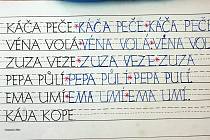 KÁČA PEČE KÁČA PEČE KÁČA PEČE
VĚNA VOLÁ VĚNA VOLÁ VĚNA VOLÁ
ZUZA VEZE ZUZA VEZE ZUZA
PEPA PŮLÍ PEPA PŮLÍ PEPA PULÍ.
EMA UMÍ EMA UMÍ EMA UMÍ.
KÁJA KOPE